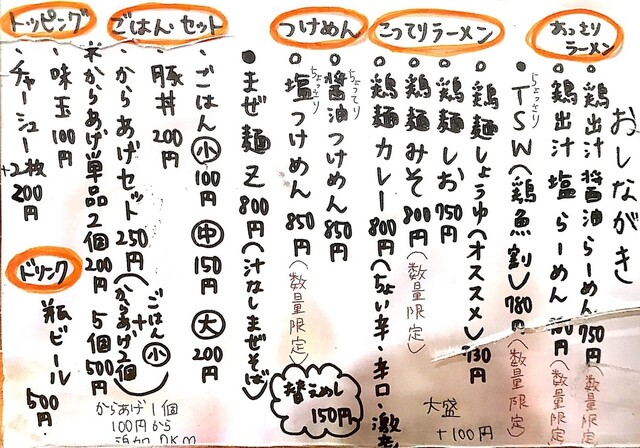 おしながき
あっさりラーメン
鶏出汁醤油らーめん 750円(数量限定)
鶏出汁塩らーめん 円(数量限定)
ちょっさり
TSW(鶏魚割)780円(数量限定)
こってりラーメン
鶏麺しょうゆ(オススメ)730円
鶏麺しお 750円
鶏麺みそ 800円(数量限定)
鶏麺カレー 800円(ちょい辛・辛口・激辛
大盛+100円
つけめん
ちょってり
醤油つけめん 850円
ちょっさり
塩つけめん 850円(数量限定)
替えめし150円
まぜ麺Z 800円(汁なしまぜそば)
ごはんセット
・ごはん 小 100円 中 150円 大 200円
・豚丼 200円
・からあげセット 250円(ごはん小+からあげ2個)
*からあげ単品2個200円 5個500円
からあげ1個
100円から
追加OKです
トッピング
・味玉 100円
・チャーシュー+2枚 200円
ドリンク
瓶ビール 500円